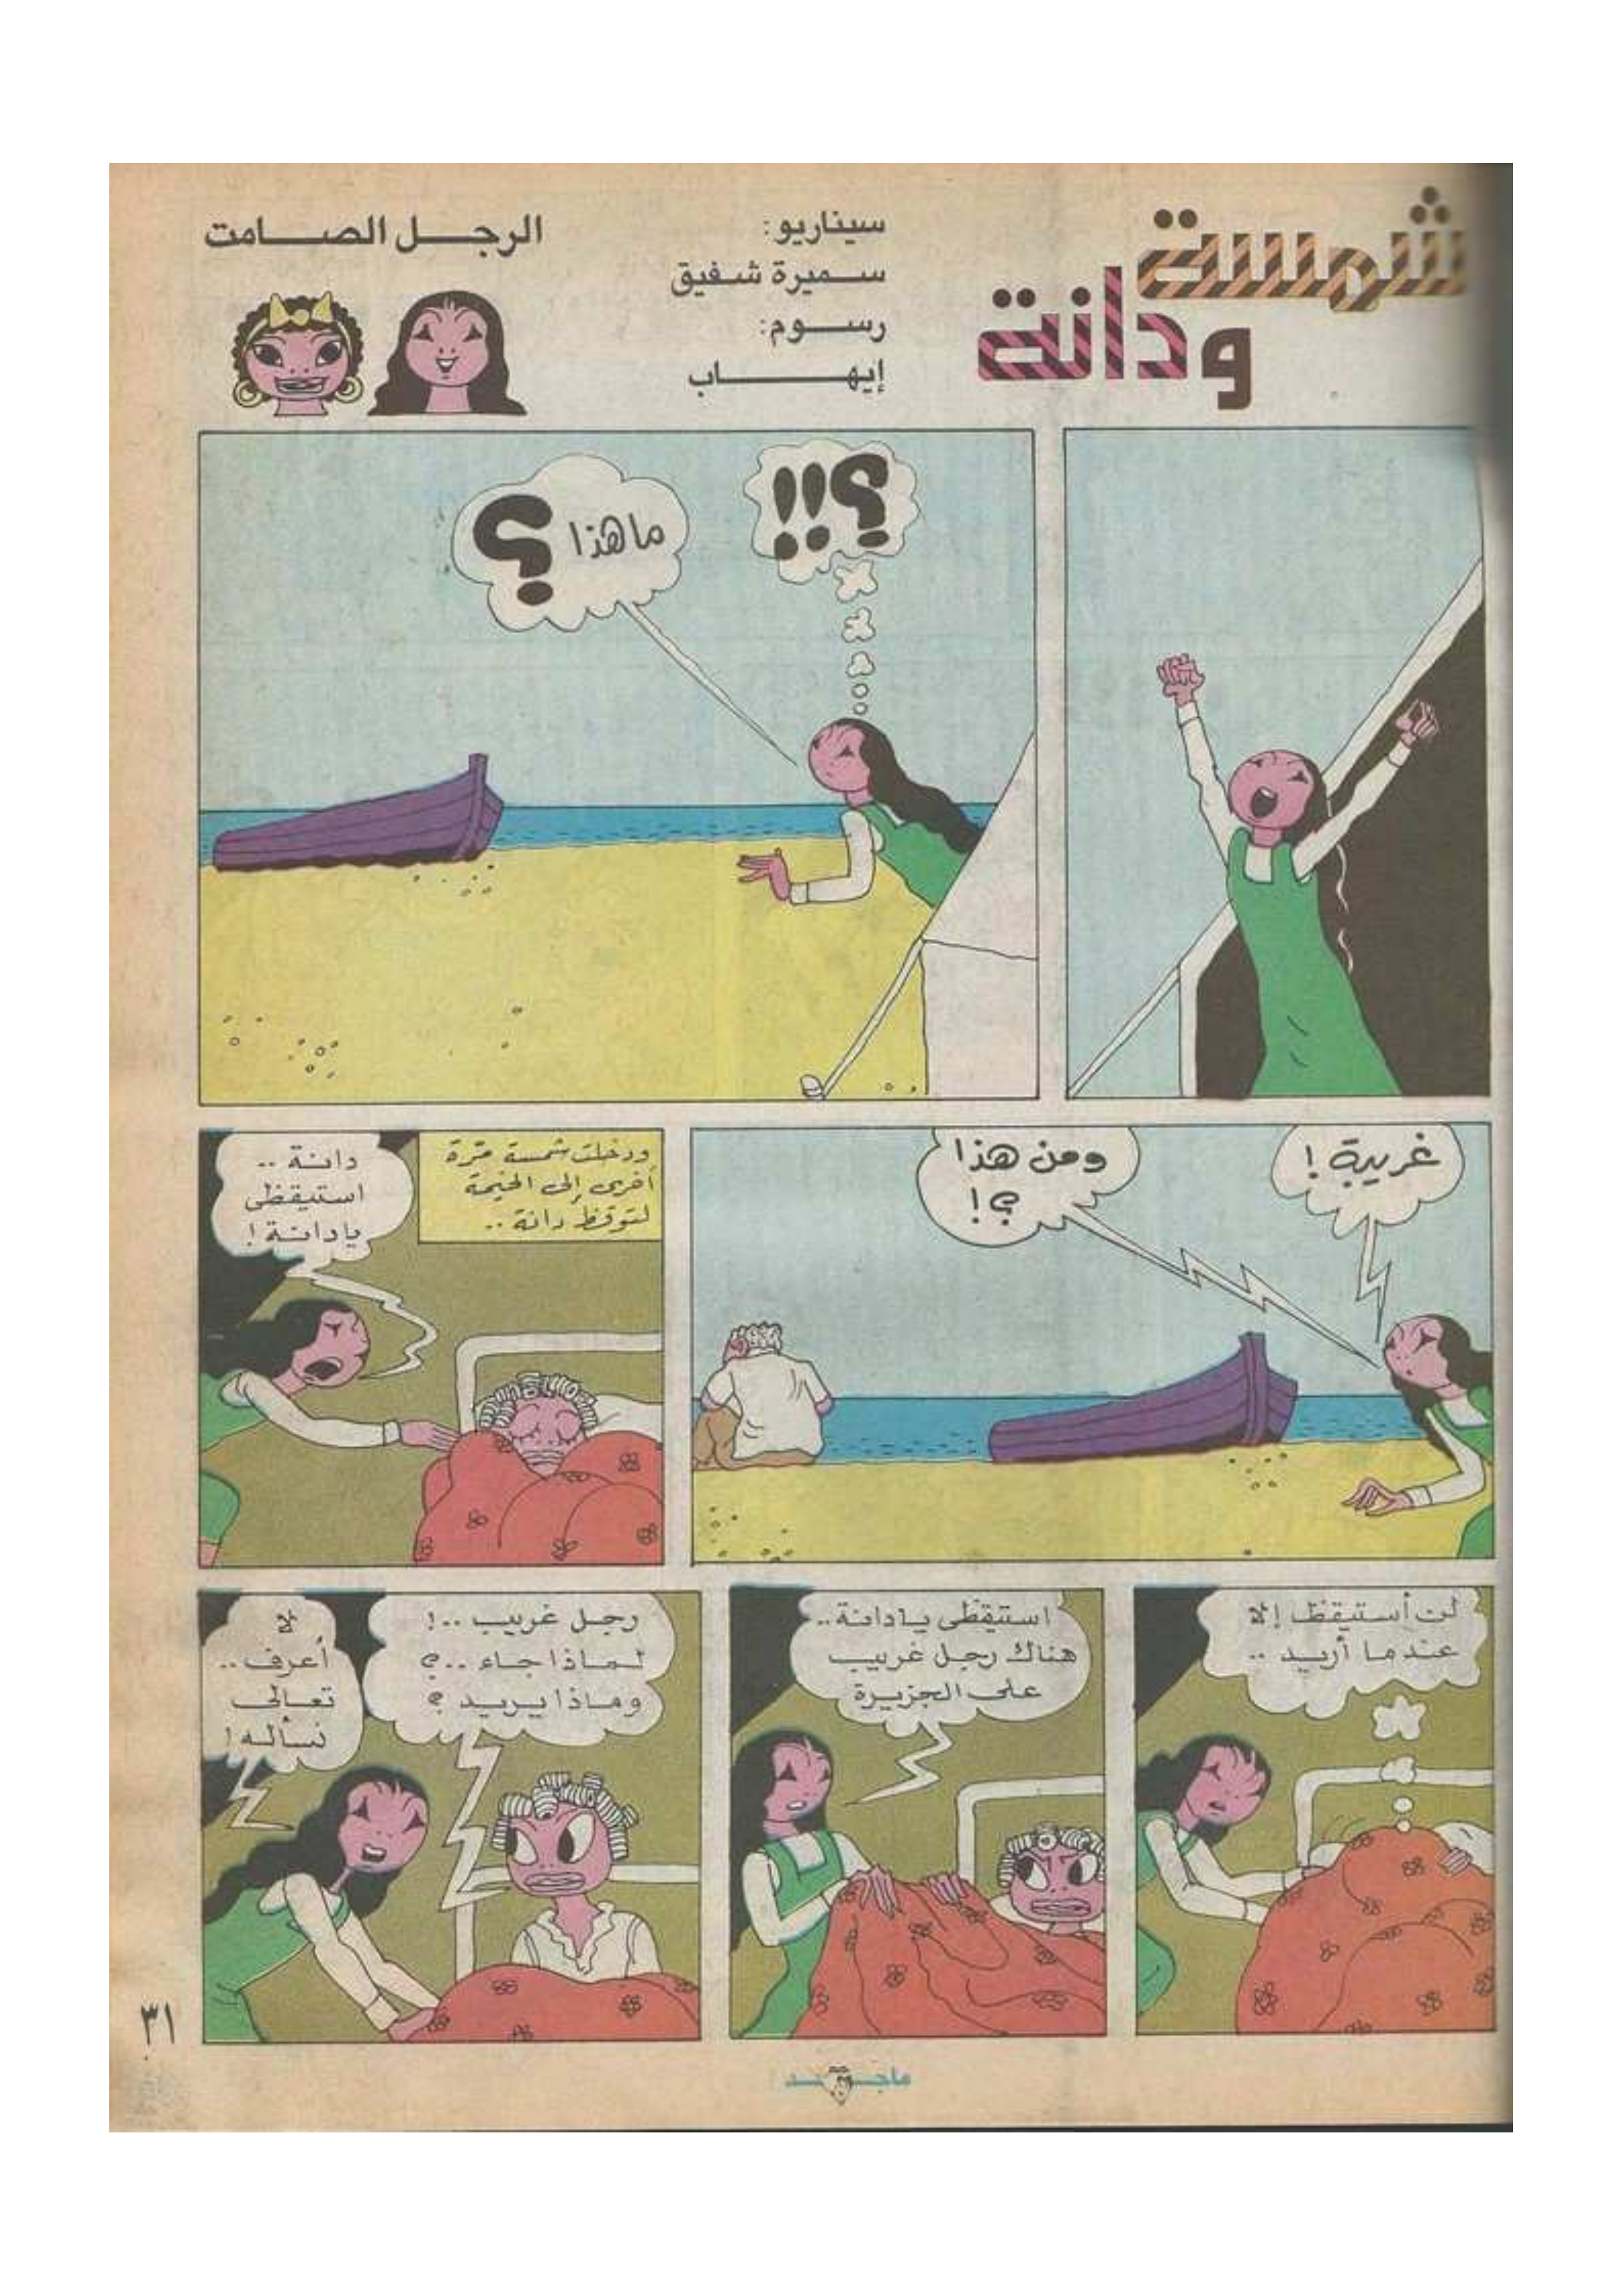 شمسة
ودانة
سيناريو:
سميرة شفيق
رسوم:
إيهاب
الرجل الصامت
؟!!
ما هذا ؟
غريبة !
ومن هذا
؟!
ودخلت شمسة مرة
أخرى إلى الخيمة
لتوقظ دانة ..
دانة ..
استيقظى
يادانة !
لن أستيقظ إلا
عندما أريد ..
استيقظى يادانة ..
هناك رجل غريب
على الجزيرة
رجل غريب ..!
لماذا جاء ..؟
وماذا يريد ؟
لا
أعرف ..
تعالى
نسأله !
٣١
ماجد